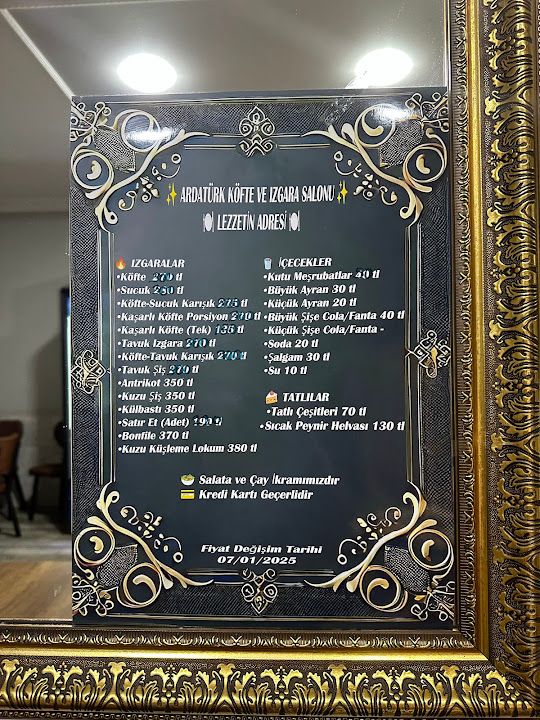 ✨ ARDATÜRK KÖFTE VE IZGARA SALONU ✨
🍽 LEZZETİN ADRESİ 🍽
🔥 IZGARALAR
•Köfte 270 tl
•Sucuk 280 tl
•Köfte-Sucuk Karışık 275 tl
•Kaşarlı Köfte Porsiyon 270 tl
•Kaşarlı Köfte (Tek) 135 tl
•Tavuk Izgara 270 tl
•Köfte-Tavuk Karışık 270 tl
•Tavuk Şiş 270 tl
•Antrikot 350 tl
•Kuzu Şiş 350 tl
•Külbastı 350 tl
•Satır Et (Adet) tl
•Bonfile 370 tl
•Kuzu Küşleme Lokum 380 tl
🥤 İÇECEKLER
•Kutu Meşrubatlar 40 tl
•Büyük Ayran 30 tl
•Küçük Ayran 20 tl
•Büyük Şişe Cola/Fanta 40 tl
•Küçük Şişe Cola/Fanta -
•Soda 20 tl
•Şalgam 30 tl
•Su 10 tl
🍰 TATLILAR
•Tatlı Çeşitleri 70 tl
•Sıcak Peynir Helvası 130 tl
🥗 Salata ve Çay İkramımızdır
💳 Kredi Kartı Geçerlidir
Fiyat Değişim Tarihi
07/01/2025